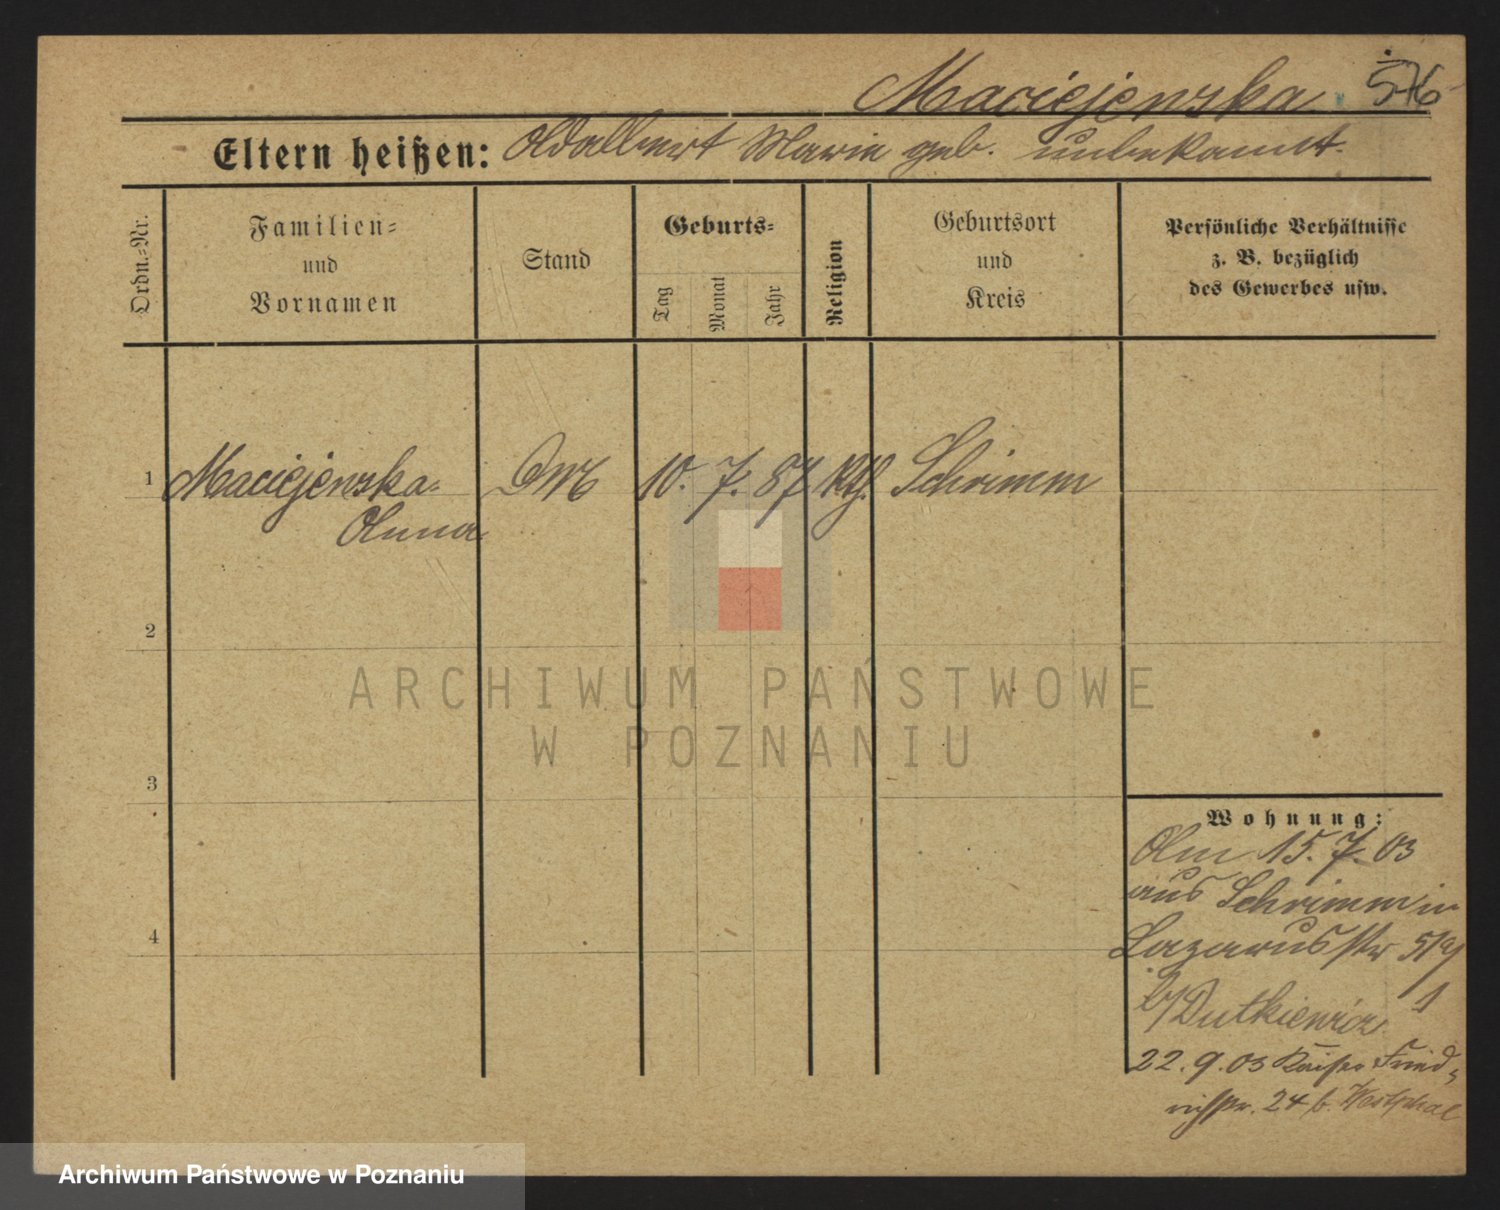 Maciejewska. 576
Eltern heißen: Adalbert Marie geb. unbekannt.
Ordn.-Nr.
Familien-
und
Vornamen
Stand
Geburts-
Tag
Monat
Jahr
Religion
Geburtsort
und
Kreis
Persönliche Verhältnisse
z. B. bezüglich
des Gewerbes usw.
1 Maciejewska 10. 7. 87 Kth. Schrimm
Anna
2
3
4
ARCHIWUM PAŃSTWOWE
W POZNANIU
Wohnung:
Am 15. 7. 03
aus Schrimm in
Lazarusstr
b/Dutkiewicz 1
22. 9. 03 Kaiser Fried-
richstr. 24 b. Westphal
Archiwum Państwowe w Poznaniu